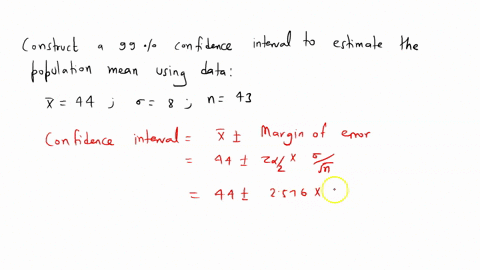 Construct a 99% confidence interval to estimate the
population mean using data:
x̄ = 44 ; σ = 8 ; n = 43
Confidence interval = x̄ ± Margin of error
= 44 ± Zα/2 × σ/√n
= 44 ± 2.576 ×